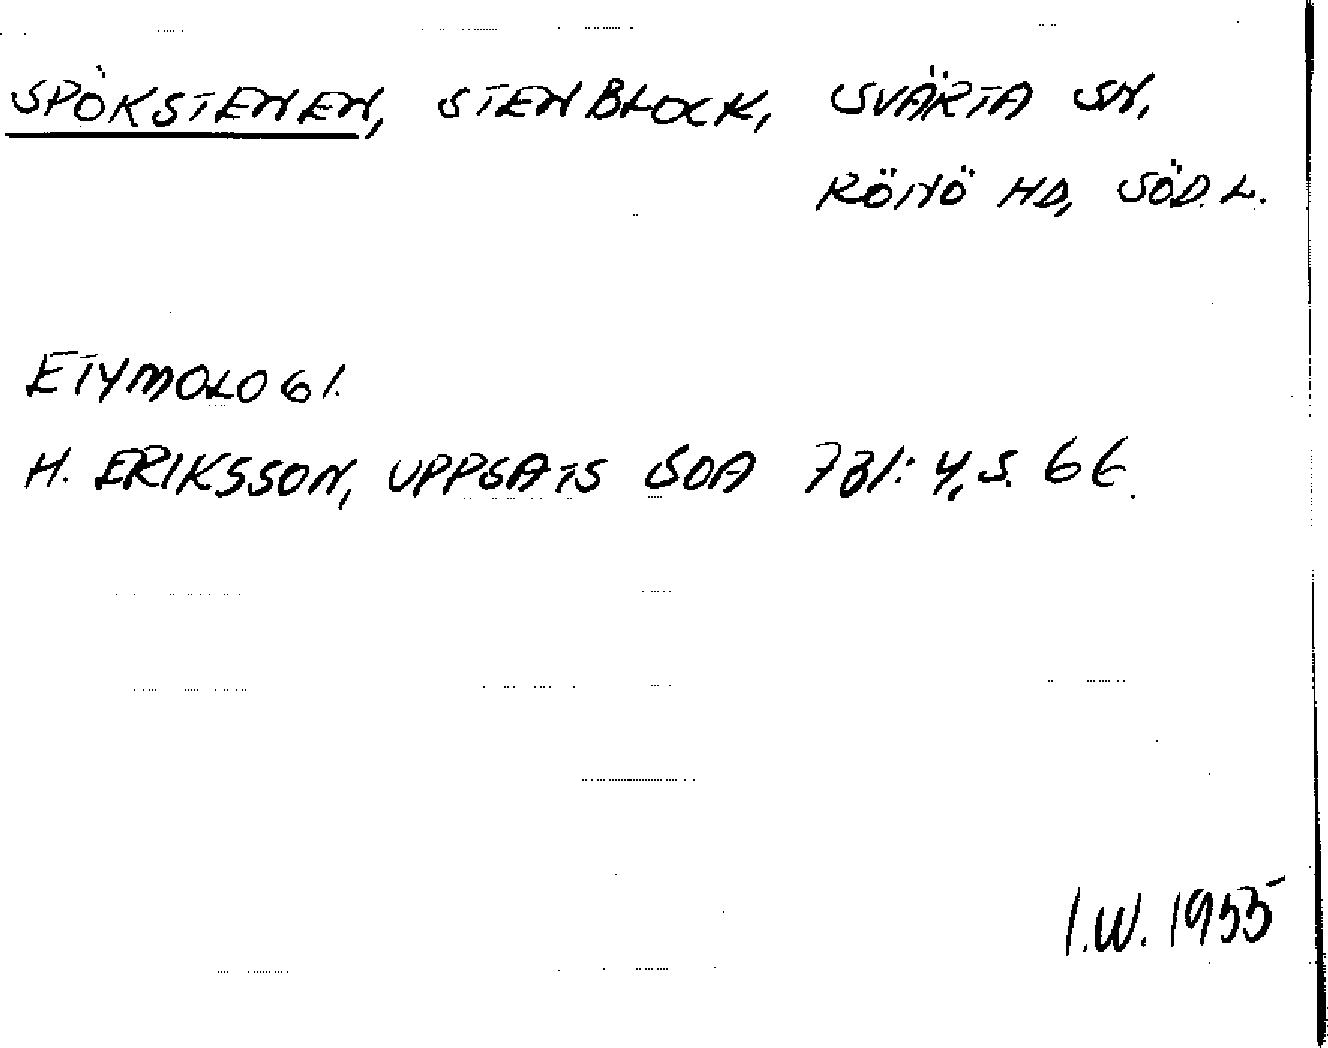 SPÖKSTENEN, STENBLOCK, SVÄRTA SN,
RÖNÖ HD, SÖD. L.
ETYMOLOGI.
H. ERIKSSON, UPPSATS SOA 731:4, S. 66.
I.W. 1955